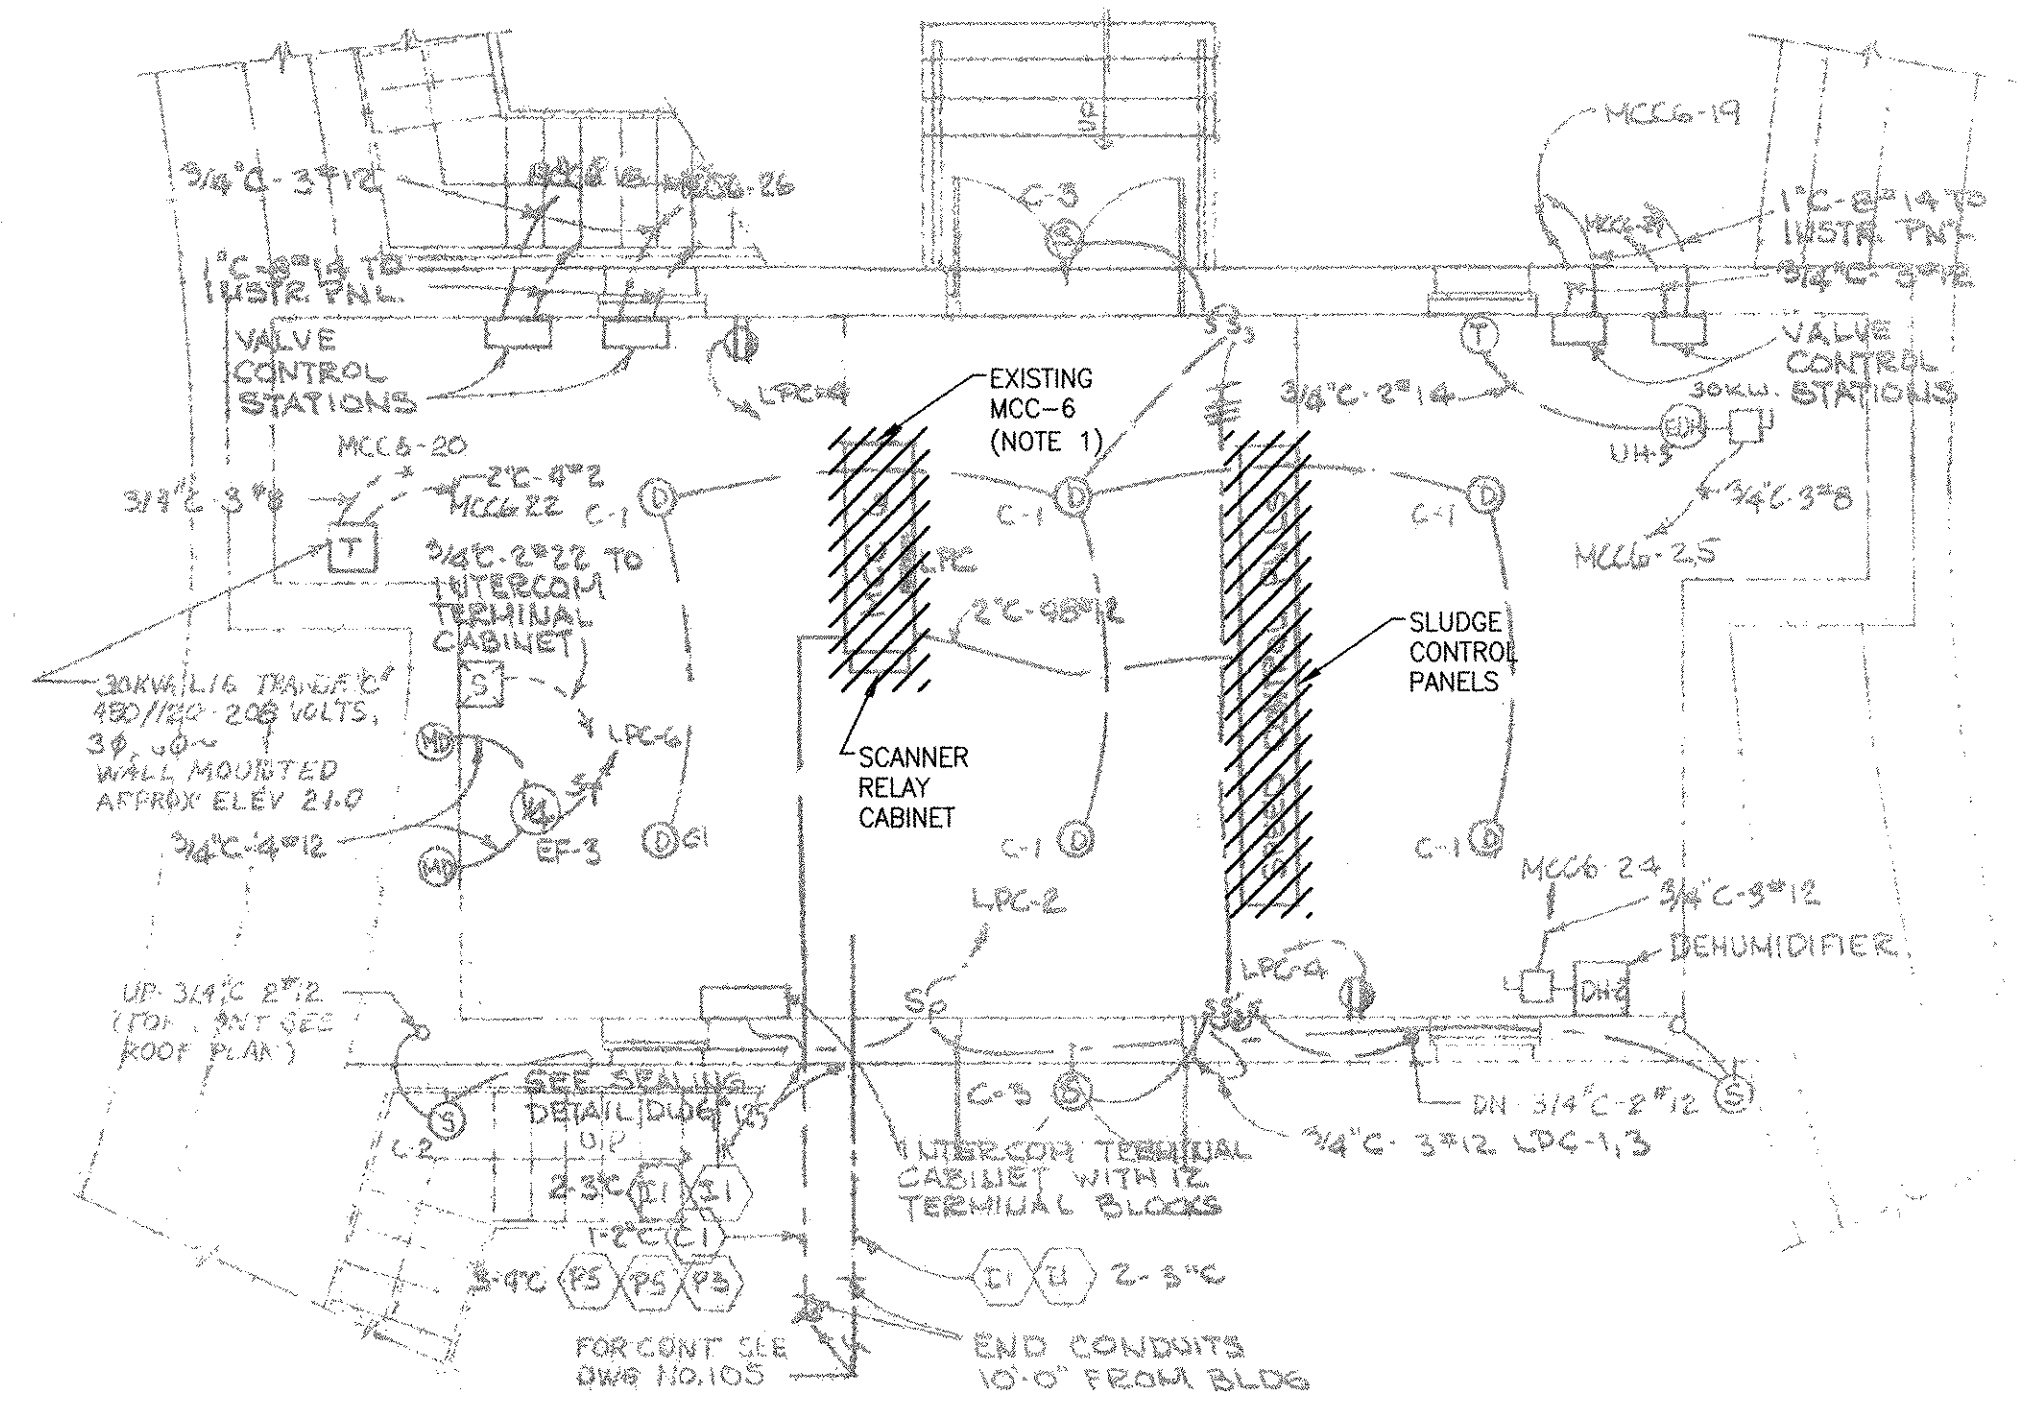 UP
MCC6-19
3/4"C-3#12
MCC6-26
C-3
S
1"C-8#14 TO
INSTR. PNL.
1"C-8#14 TO
INSTR. PNL.
3/4"C-3#12
VALVE
CONTROL
STATIONS
LPC-4
EXISTING
MCC-6
(NOTE 1)
S S3
T
3/4"C-2#14
VALVE
CONTROL
STATIONS
30KW.
EUH
UH-3
MCC6-20
3/4"C-3#8
2"C-4#2
MCC6-22
T
C-1
D
C-1
D
C-1
D
3/4"C-3#8
MCC6-25
3/4"C-2#22 TO
INTERCOM
TERMINAL
CABINET
LPC
2"C-48#12
SLUDGE
CONTROL
PANELS
S
30KVA
480/120-208 VOLTS,
3Ø,
WALL MOUNTED
APPROX ELEV 21.0
MD
LPC-6
SCANNER
RELAY
CABINET
3/4"C-4#12
MD
EF-3
D
C-1
C-1
D
C-1
D
MCC6-24
3/4"C-3#12
LPC-2
LPC-4
DEHUMIDIFIER
UP 3/4"C 2#12
SEE
ROOF PLAN)
SP
S
SEE SEALING
DETAIL DWG 125
UP
C-3
S
DN 3/4"C-2#12
S
3/4"C-3#12 LPC-1,3
INTERCOM TERMINAL
CABINET WITH 12
TERMINAL BLOCKS
2-3"C I1 I1
1-2"C C1
3-4"C P5 P5 P3
I1 I1 2-3"C
FOR CONT SEE
DWG NO. 105
END CONDUITS
10'-0" FROM BLDG